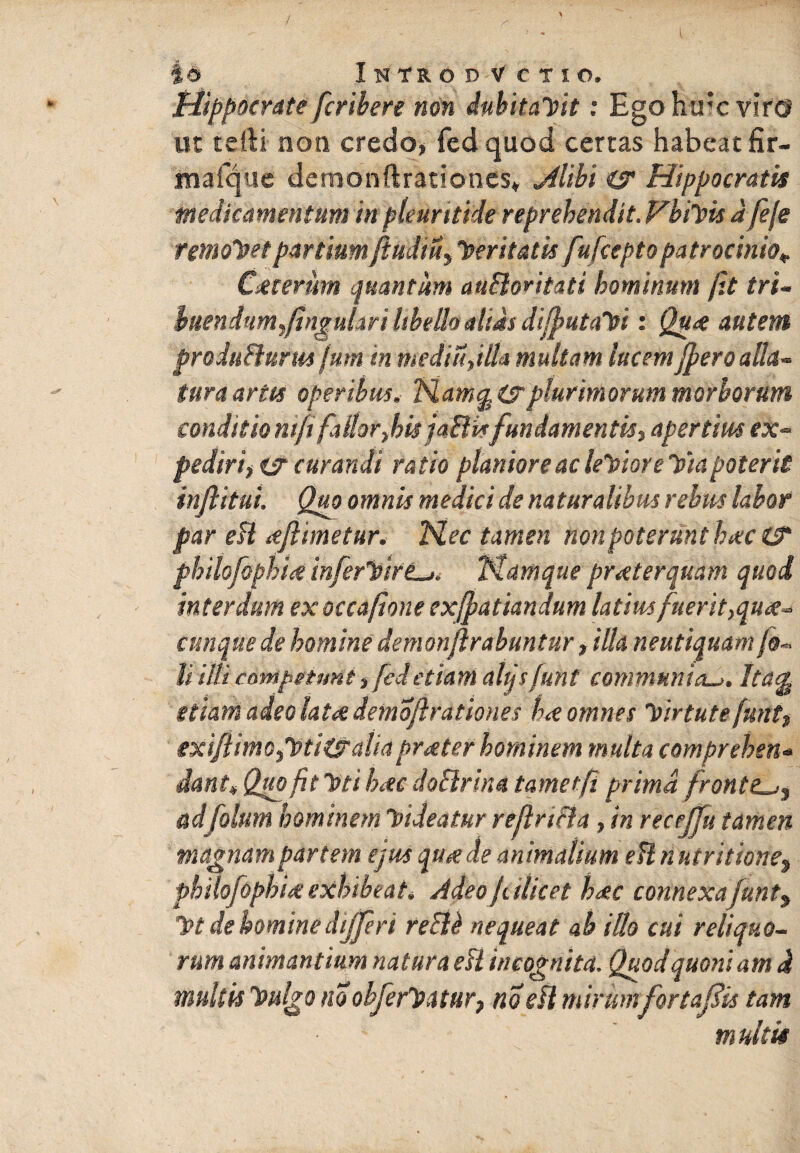 10 INTRODVCTIO.
Hippocrate ſcribere non dubitaVit : Ego huic viro
ut teſti non credo, ſed quod certas habeat fir-
maſque demonſtrationes. Alibi & Hippocratis
medicamentum in pleuritide reprehendit. VbiVis à ſeſe
remoVet partium ſtudiū, Veritatis ſuſcepto patrocinio.
Cæterùm quantùm auctoritati hominum ſit tri-
buendum, ſingulari libello aliàs diſputaVi : Quæ autem
producturus ſum in mediū, illa multam lucem ſpero alla-
tura artis operibus. Namq; & plurimorum morborum
conditio niſi fallor, his jactis fundamentis, apertius ex-
pediri, & curandi ratio planiore ac leViore Via poterit
inſtitui. Quo omnis medici de naturalibus rebus labor
par eſt æſtimetur. Nec tamen non poterunt hæc &
philoſophiæ inſerVire. Namque præterquam quod
interdum ex occaſione exſpatiandum latius fuerit, quæ-
cunque de homine demonſtrabuntur, illa neutiquam ſo-
li illi competunt, ſed etiam alijs ſunt communia. Itaq;
etiam adeo latæ demōſtrationes hæ omnes Virtute ſunt,
exiſtimo, Vti & alia præter hominem multa comprehen-
dant. Quo fit Vti hæc doctrina tametſi primâ fronte,
ad ſolum hominem Videatur reſtricta, in receſſu tamen
magnam partem ejus quæ de animalium eſt nutritione,
philoſophiæ exhibeat. Adeo ſcilicet hæc connexa ſunt,
Vt de homine diſſeri rectè nequeat ab illo cui reliquo-
rum animantium natura eſt incognita. Quod quoniam à
multis Vulgo nō obſerVatur, nō eſt mirum fortaſsis tam
multis